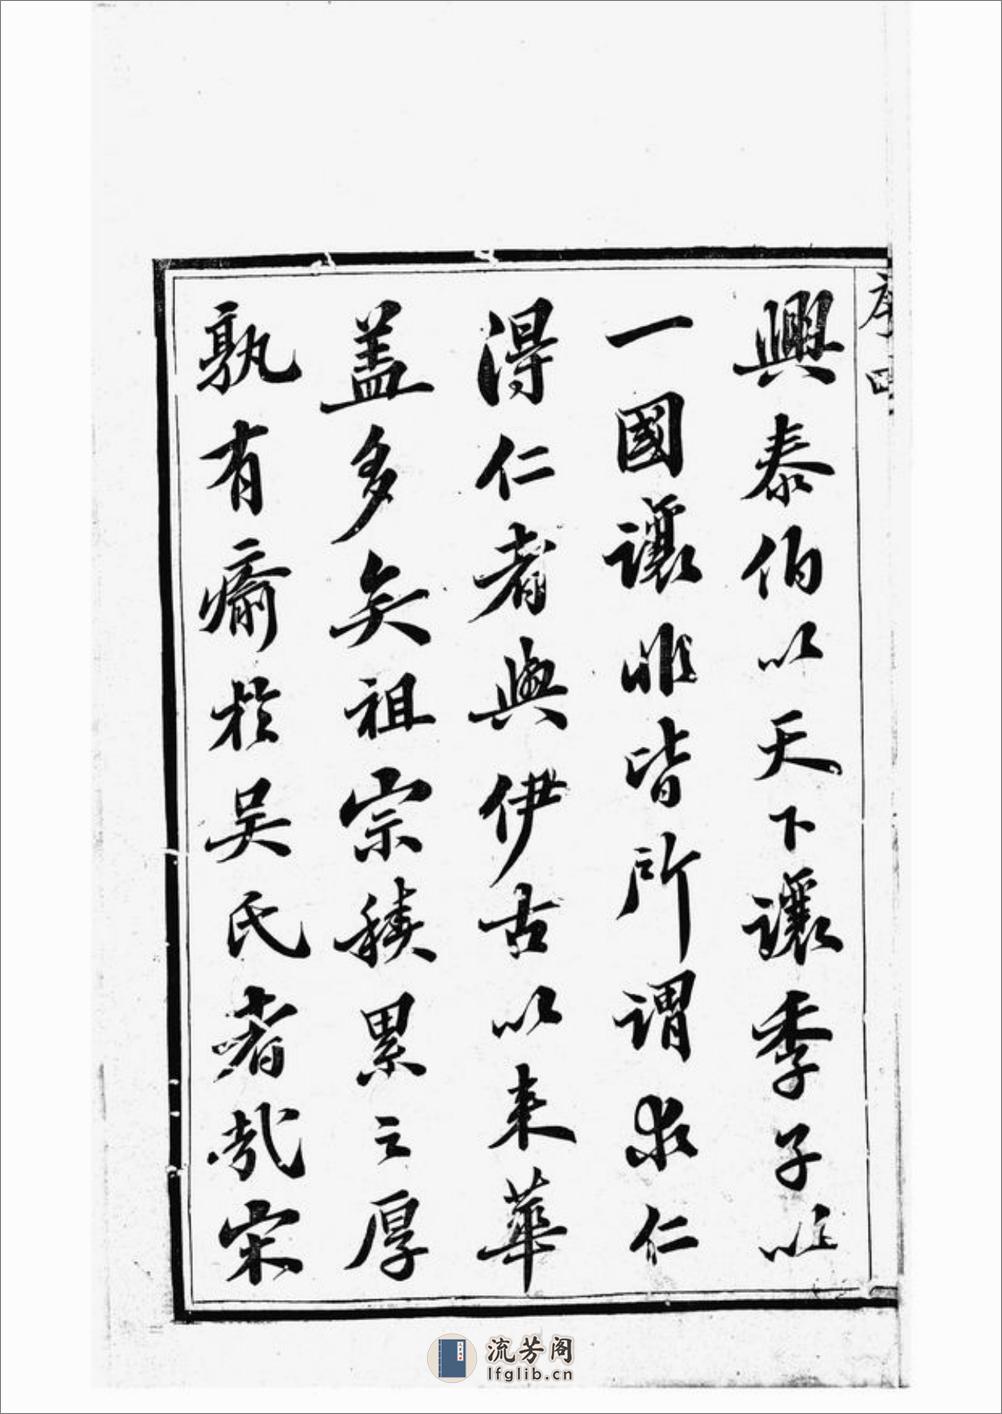 序 四
興泰伯以天下讓季子以
一國讓非皆所謂求仁
得仁者與伊古以来華
盖多矣祖宗積累之厚
孰有瘉於吴氏者哉宋
流芳阁
lfglib.cn